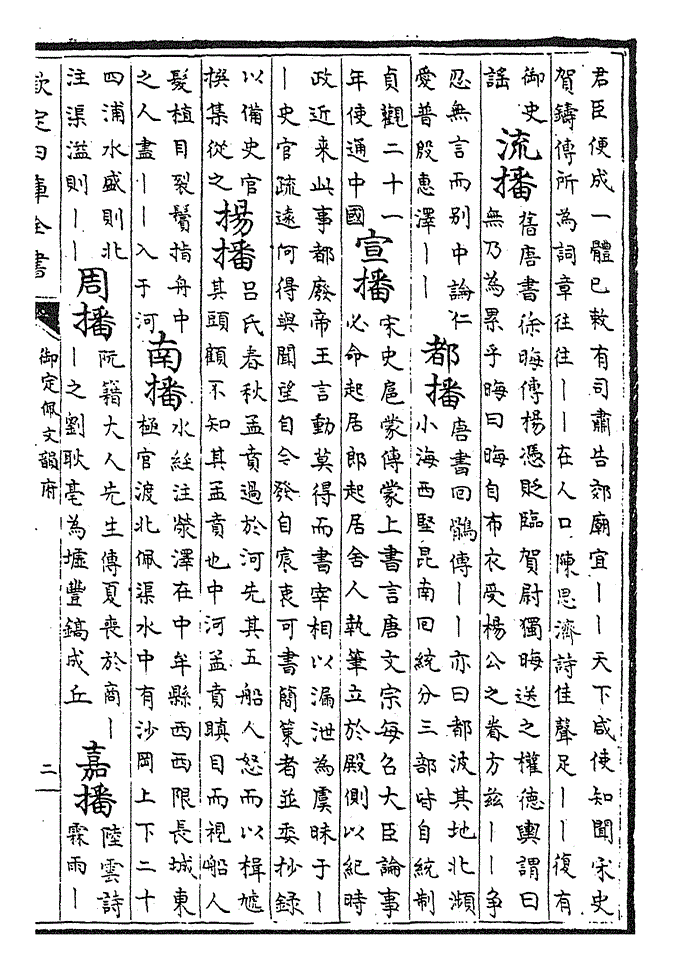 君臣便成一體已敕有司肅告郊廟宜丨丨天下咸使知聞宋史
賀鑄傳所為詞章往往丨丨在人口陳思濟詩佳聲足丨丨復有
御史
謠
流播
舊唐書徐晦傳楊憑貶臨賀尉獨晦送之權德輿謂曰
無乃為累乎晦曰晦自布衣受楊公之眷方茲丨丨爭
忍無言而別中論仁
愛普殷惠澤丨丨
都播
唐書回鶻傳丨丨亦曰都波其地北瀕
小海西堅昆南回紇分三部皆自統制
貞觀二十一
年使通中國
宣播
宋史扈蒙傳蒙上書言唐文宗每召大臣論事
必命起居郎起居舍人執筆立於殿側以紀時
政近来此事都廢帝王言動莫得而書宰相以漏泄為虞昧于丨
丨史官疏遠何得與聞望自今發自宸衷可書簡策者並委抄錄
以備史官
撰集從之
揚播
呂氏春秋孟賁過於河先其五船人怒而以楫虓
其頭顧不知其孟賁也中河孟賁瞋目而視船人
髮植目裂鬢指舟中
之人盡丨丨入于河
南播
水經注滎澤在中牟縣西西限長城東
極官渡北佩渠水中有沙岡上下二十
四浦水盛則北
注渠溢則丨丨
周播
阮籍大人先生傳夏喪於商丨
丨之劉耿亳為墟豐鎬成丘
嘉播
陸雲詩
霖雨丨
欽定四庫全書
御定佩文韻府
二